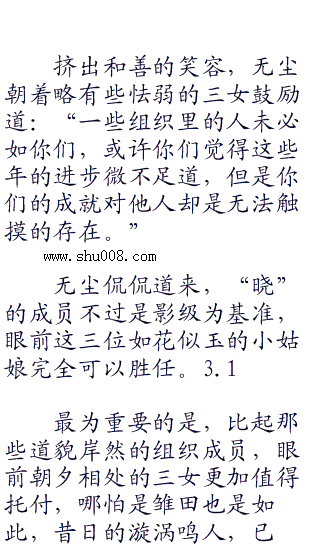 挤出和善的笑容，无尘
朝着略有些怯弱的三女鼓励
道：“一些组织里的人未必
如你们，或许你们觉得这些
年的进步微不足道，但是你
们的成就对他人却是无法触
摸的存在。”
www.shu008.com
无尘侃侃道来，“晓”
的成员不过是影级为基准，
眼前这三位如花似玉的小姑
娘完全可以胜任。3.1
最为重要的是，比起那
些道貌岸然的组织成员，眼
前朝夕相处的三女更加值得
托付，哪怕是雏田也是如
此，昔日的漩涡鸣人，已